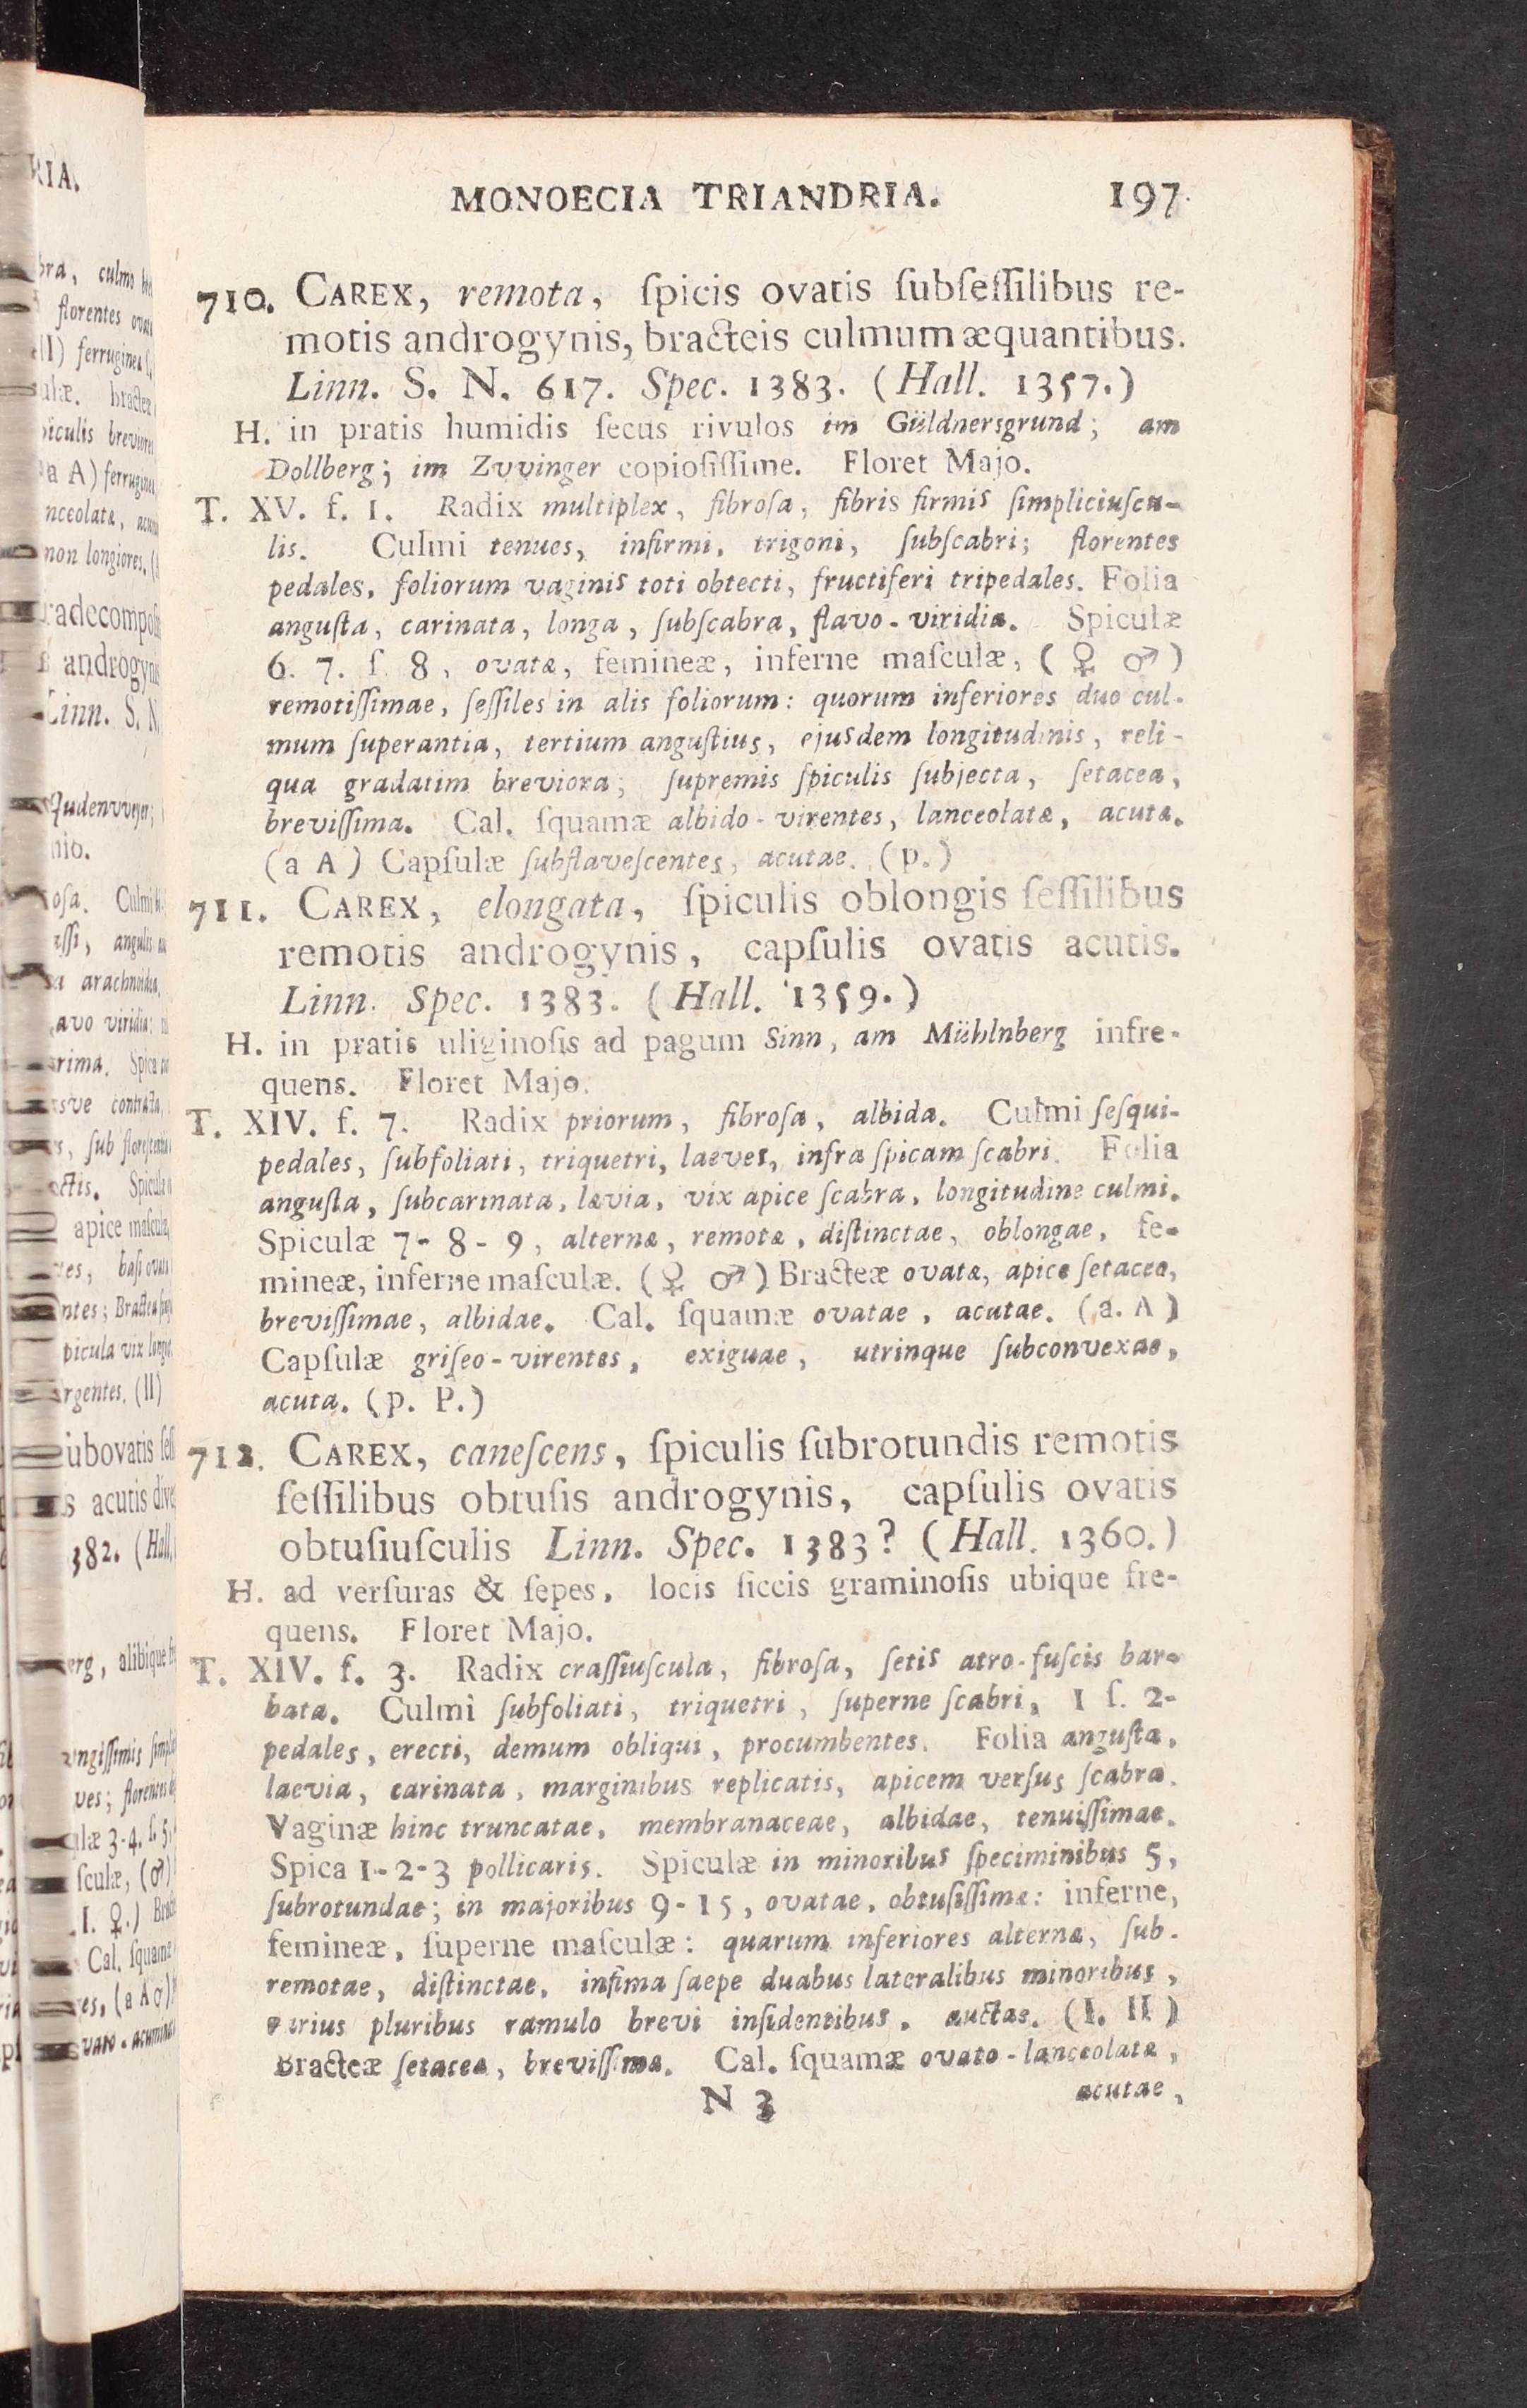 MONOECIA TRIANDRIA. 197
710. CAREX, remota, ſpicis ovatis ſubſeſſilibus re-
motis androgynis, bracteis culmum æquantibus.
Linn. S. N. 617. Spec. 1383. (Hall. 1357.)
H. in pratis humidis ſecus rivulos im Güldnersgrund; am
Dollberg; im Zvvinger copioſiſſime. Floret Majo.
T. XV. f. 1. Radix multiplex, fibroſa, fibris firmis ſimpliciuſcu-
lis. Culmi tenues, infirmi, trigoni, ſubſcabri; florentes
pedales, foliorum vaginis toti obtecti, fructiferi tripedales. Folia
anguſta, carinata, longa, ſubſcabra, flavo-viridia. Spiculæ
6. 7. ſ. 8, ovatæ, femineæ, inferne maſculæ, (♀ ♂)
remotiſſimae, ſeſſiles in alis foliorum: quorum inferiores duo cul-
mum ſuperantia, tertium anguſtius, ejusdem longitudinis, reli-
qua gradatim breviora; ſupremis ſpiculis ſubjecta, ſetacea,
breviſſima. Cal. ſquamæ albido-virentes, lanceolatæ, acutæ.
(a A) Capſulæ ſubflaveſcentes, acutae. (p.)
711. CAREX, elongata, ſpiculis oblongis ſeſſilibus
remotis androgynis, capſulis ovatis acutis.
Linn. Spec. 1383. (Hall. 1359.)
H. in pratis uliginoſis ad pagum Sinn, am Mühlnberg infre-
quens. Floret Majo.
T. XIV. f. 7. Radix priorum, fibroſa, albida. Culmi ſeſqui-
pedales, ſubfoliati, triquetri, laeves, infra ſpicam ſcabri. Folia
anguſta, ſubcarinata, lævia, vix apice ſcabra, longitudine culmi.
Spiculæ 7-8-9, alternæ, remotæ, diſtinctae, oblongae, fe-
mineæ, inferne maſculæ. (♀ ♂) Bracteæ ovatæ, apice ſetaceæ,
breviſſimae, albidae. Cal. ſquamæ ovatae, acutae. (a. A)
Capſulæ griſeo-virentes, exiguae, utrinque ſubconvexae,
acutæ. (p. P.)
712. CAREX, caneſcens, ſpiculis ſubrotundis remotis
ſeſſilibus obtuſis androgynis, capſulis ovatis
obtuſiuſculis Linn. Spec. 1383? (Hall. 1360.)
H. ad verſuras & ſepes, locis ſiccis graminoſis ubique fre-
quens. Floret Majo.
T. XIV. f. 3. Radix craſſiuſcula, fibroſa, ſetis atro-fuſcis bar-
bata. Culmi ſubfoliati, triquetri, ſuperne ſcabri, 1 ſ. 2-
pedales, erecti, demum obliqui, procumbentes. Folia anguſta,
laevia, carinata, marginibus replicatis, apicem verſus ſcabra.
Vaginæ hinc truncatae, membranaceae, albidae, tenuiſſimae.
Spica 1-2-3 pollicaris. Spiculæ in minoribus ſpeciminibus 5,
ſubrotundae; in majoribus 9-15, ovatae, obtuſiſſimæ: inferne,
femineæ, ſuperne maſculæ: quarum inferiores alternæ, ſub-
remotae, diſtinctae, infima ſaepe duabus lateralibus minoribus,
rarius pluribus ramulo brevi inſidentibus, auctae. (I. II)
Bracteæ ſetaceæ, breviſſimæ. Cal. ſquamæ ovato-lanceolatæ,
N 3 acutae,